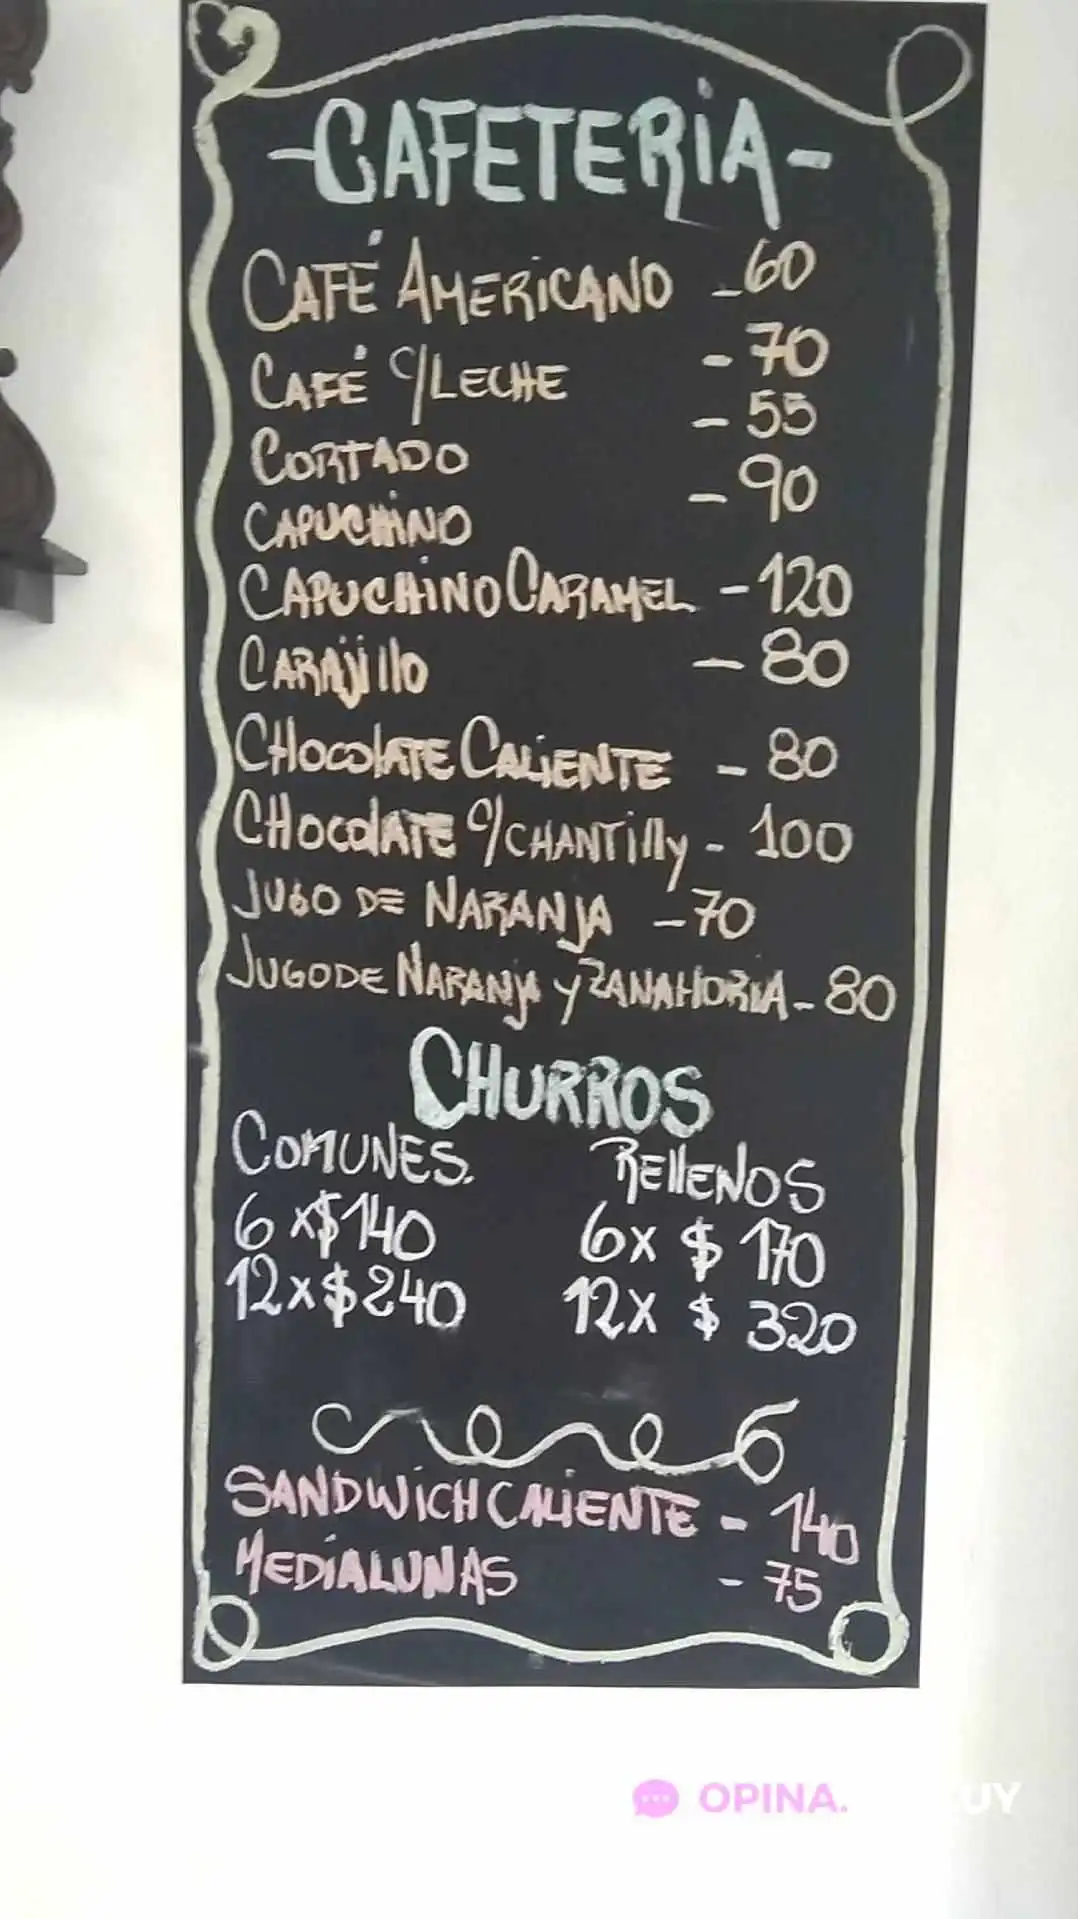 -CAFETERIA-
CAFÉ AMERICANO - 60
CAFÉ C/LECHE - 70
CORTADO - 55
CAPUCHINO - 90
CAPUCHINO CARAMEL - 120
CARAJILLO - 80
CHOCOLATE CALIENTE - 80
CHOCOLATE C/CHANTILLY - 100
JUGO DE NARANJA - 70
JUGO DE NARANJA Y ZANAHORIA - 80
CHURROS
COMUNES. RELLENOS
6 x $140 6x $ 170
12 x $240 12x $ 320
SANDWICH CALIENTE - 140
MEDIALUNAS - 75
OPINA. UY